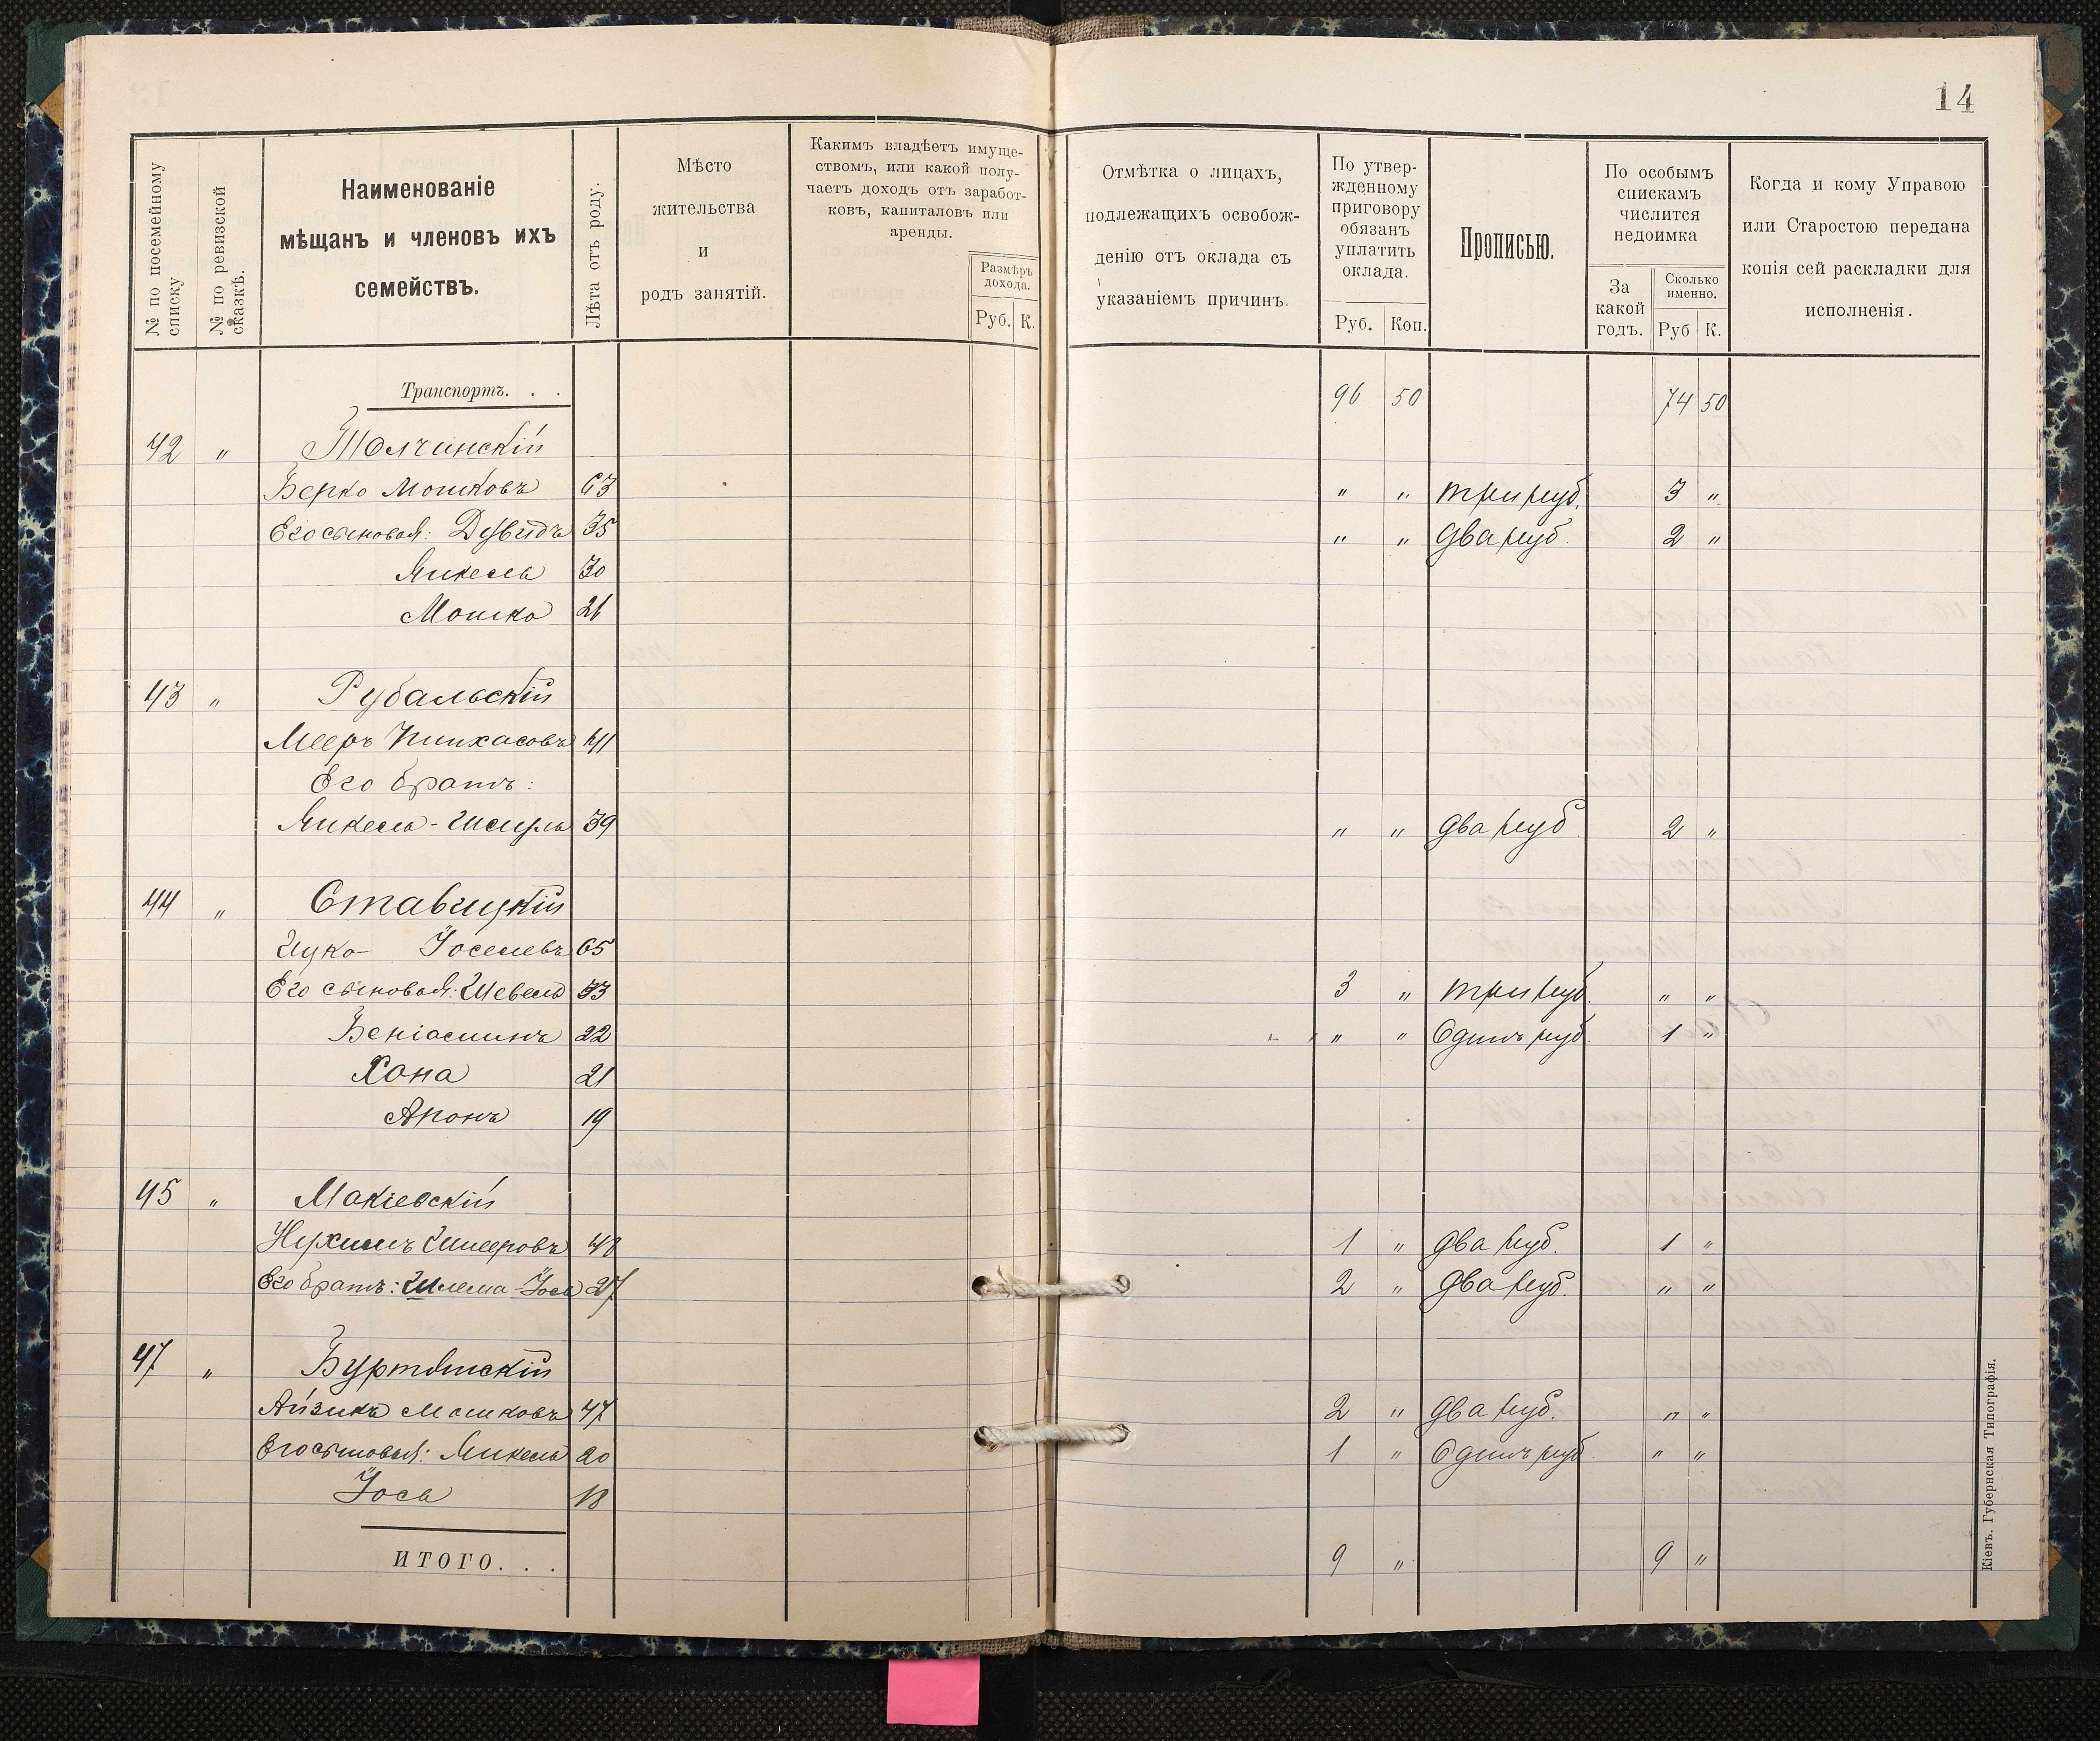 14
№ по посемейному списку
№ по ревизской сказкѣ.
Наименованіе
мѣщанъ и членовъ ихъ
семействъ.
Лѣта отъ роду.
Мѣсто
жительства
и
родъ занятій.
Какимъ владѣетъ имуще-
ствомъ, или какой полу-
чаетъ доходъ отъ заработ-
ковъ, капиталовъ или
аренды.
Размѣръ
дохода.
Руб. К.
Отмѣтка о лицахъ,
подлежащихъ освобож-
денію отъ оклада съ
указаніемъ причинъ.
По утвер-
жденному
приговору
обязанъ
уплатить
оклада.
Руб. Коп.
Прописью.
По особымъ
спискамъ
числится
недоимка
За
какой
годъ.
Сколько
именно.
Руб К.
Когда и кому Управою
или Старостою передана
копія сей раскладки для
исполненія.
Транспортъ. . . 96 50 74 50
42 " Толчинскій
Берко Мошковъ 63 " " три руб. 3 "
Его сыновья: Дувидъ 35 " " два руб. 2 "
Янкель 30
Мошко 26
43 " Рубальскій
Мееръ Пинхасовъ 41
Его братъ:
Янкель-Шмуль 39 " " два руб 2 "
44 " Ставицкій
Ицко Іоселевъ 65
Его сыновья: Шевель 33 3 " три руб. " "
Беніаминъ 22 " " Одинъ руб. 1 "
Хона 21
Аронъ 19
45 " Макіевскій
Нухимъ 48 1 " два руб. 1 "
Его братъ: Шлема-Іось 27 2 " два руб. " "
47 "
Айзикъ Мошковъ 47 2 " два руб. " "
Его сыновья: Янкель 20 1 " Одинъ руб. " "
Іось 18
ИТОГО. . . 9 " 9 "
Кіевъ. Губернская Типографія.